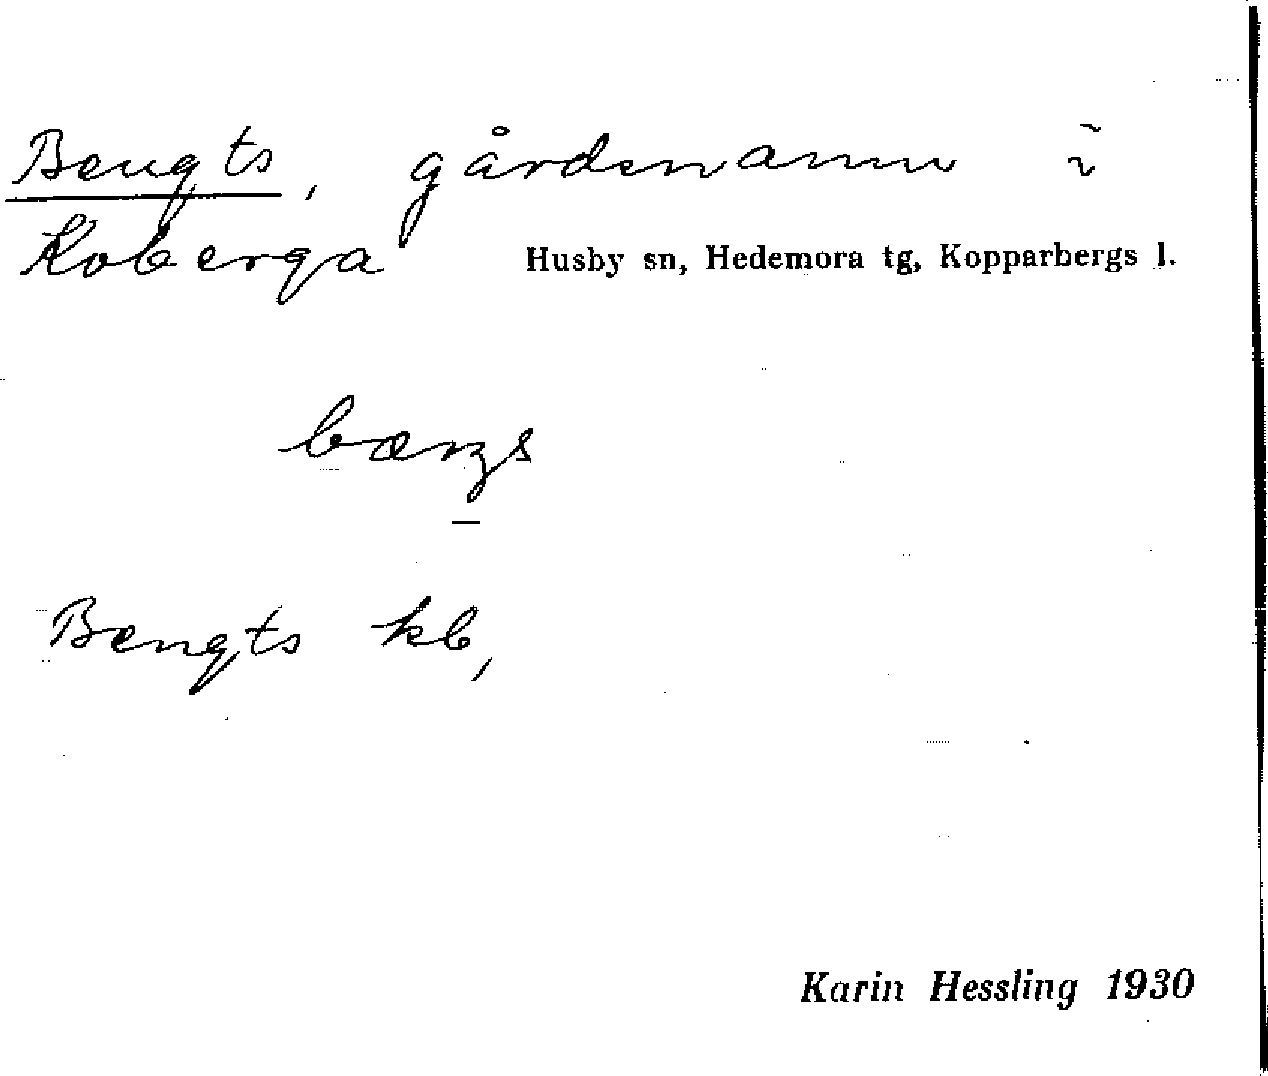 Bengts, gårdsnamn i
Koberga Husby sn, Hedemora tg, Kopparbergs l.
bæŋs
Bengts kb,
Karin Hessling 1930